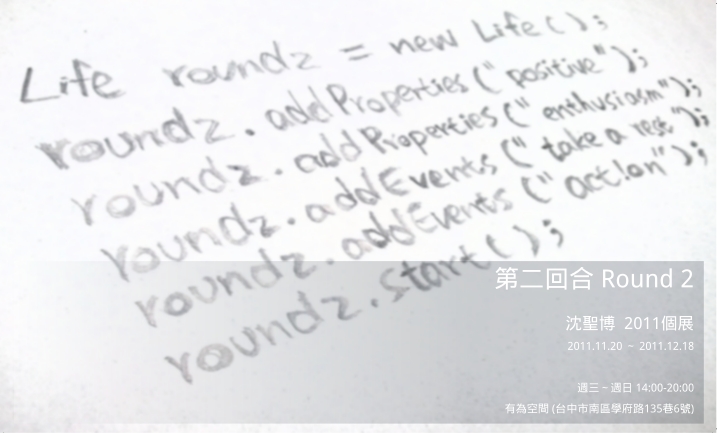 Life round2 = new Life();
round2.addProperties("positive");
round2.addProperties("enthusiasm");
round2.addEvents("take a rest");
round2.addEvents("act!on");
round2.start();
第二回合 Round 2
沈聖博 2011個展
2011.11.20 ~ 2011.12.18
週三 ~ 週日 14:00-20:00
有為空間 (台中市南區學府路135巷6號)